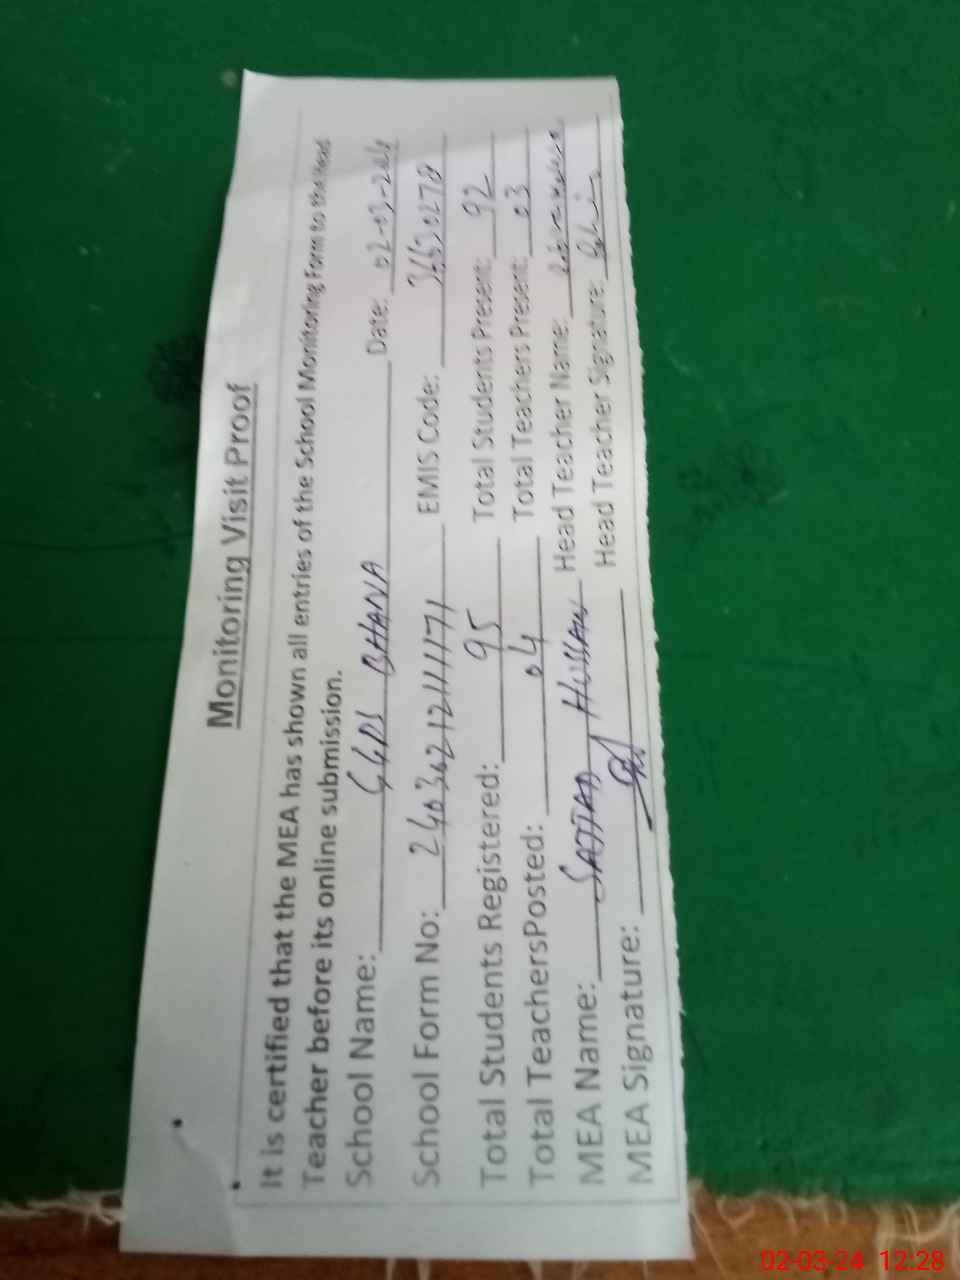 Monitoring Visit Proof
It is certified that the MEA has shown all entries of the School Monitoring Form to the Head
Teacher before its online submission.
School Name: GGPS BHANA Date: 02-03-2024
School Form No: 24030212111171 EMIS Code: 36630278
Total Students Registered: 95 Total Students Present: 92
Total TeachersPosted: 04 Total Teachers Present: 03
MEA Name: SAJJAD HUSSAIN Head Teacher Name:
MEA Signature: Head Teacher Signature:
02-03-24 12:28